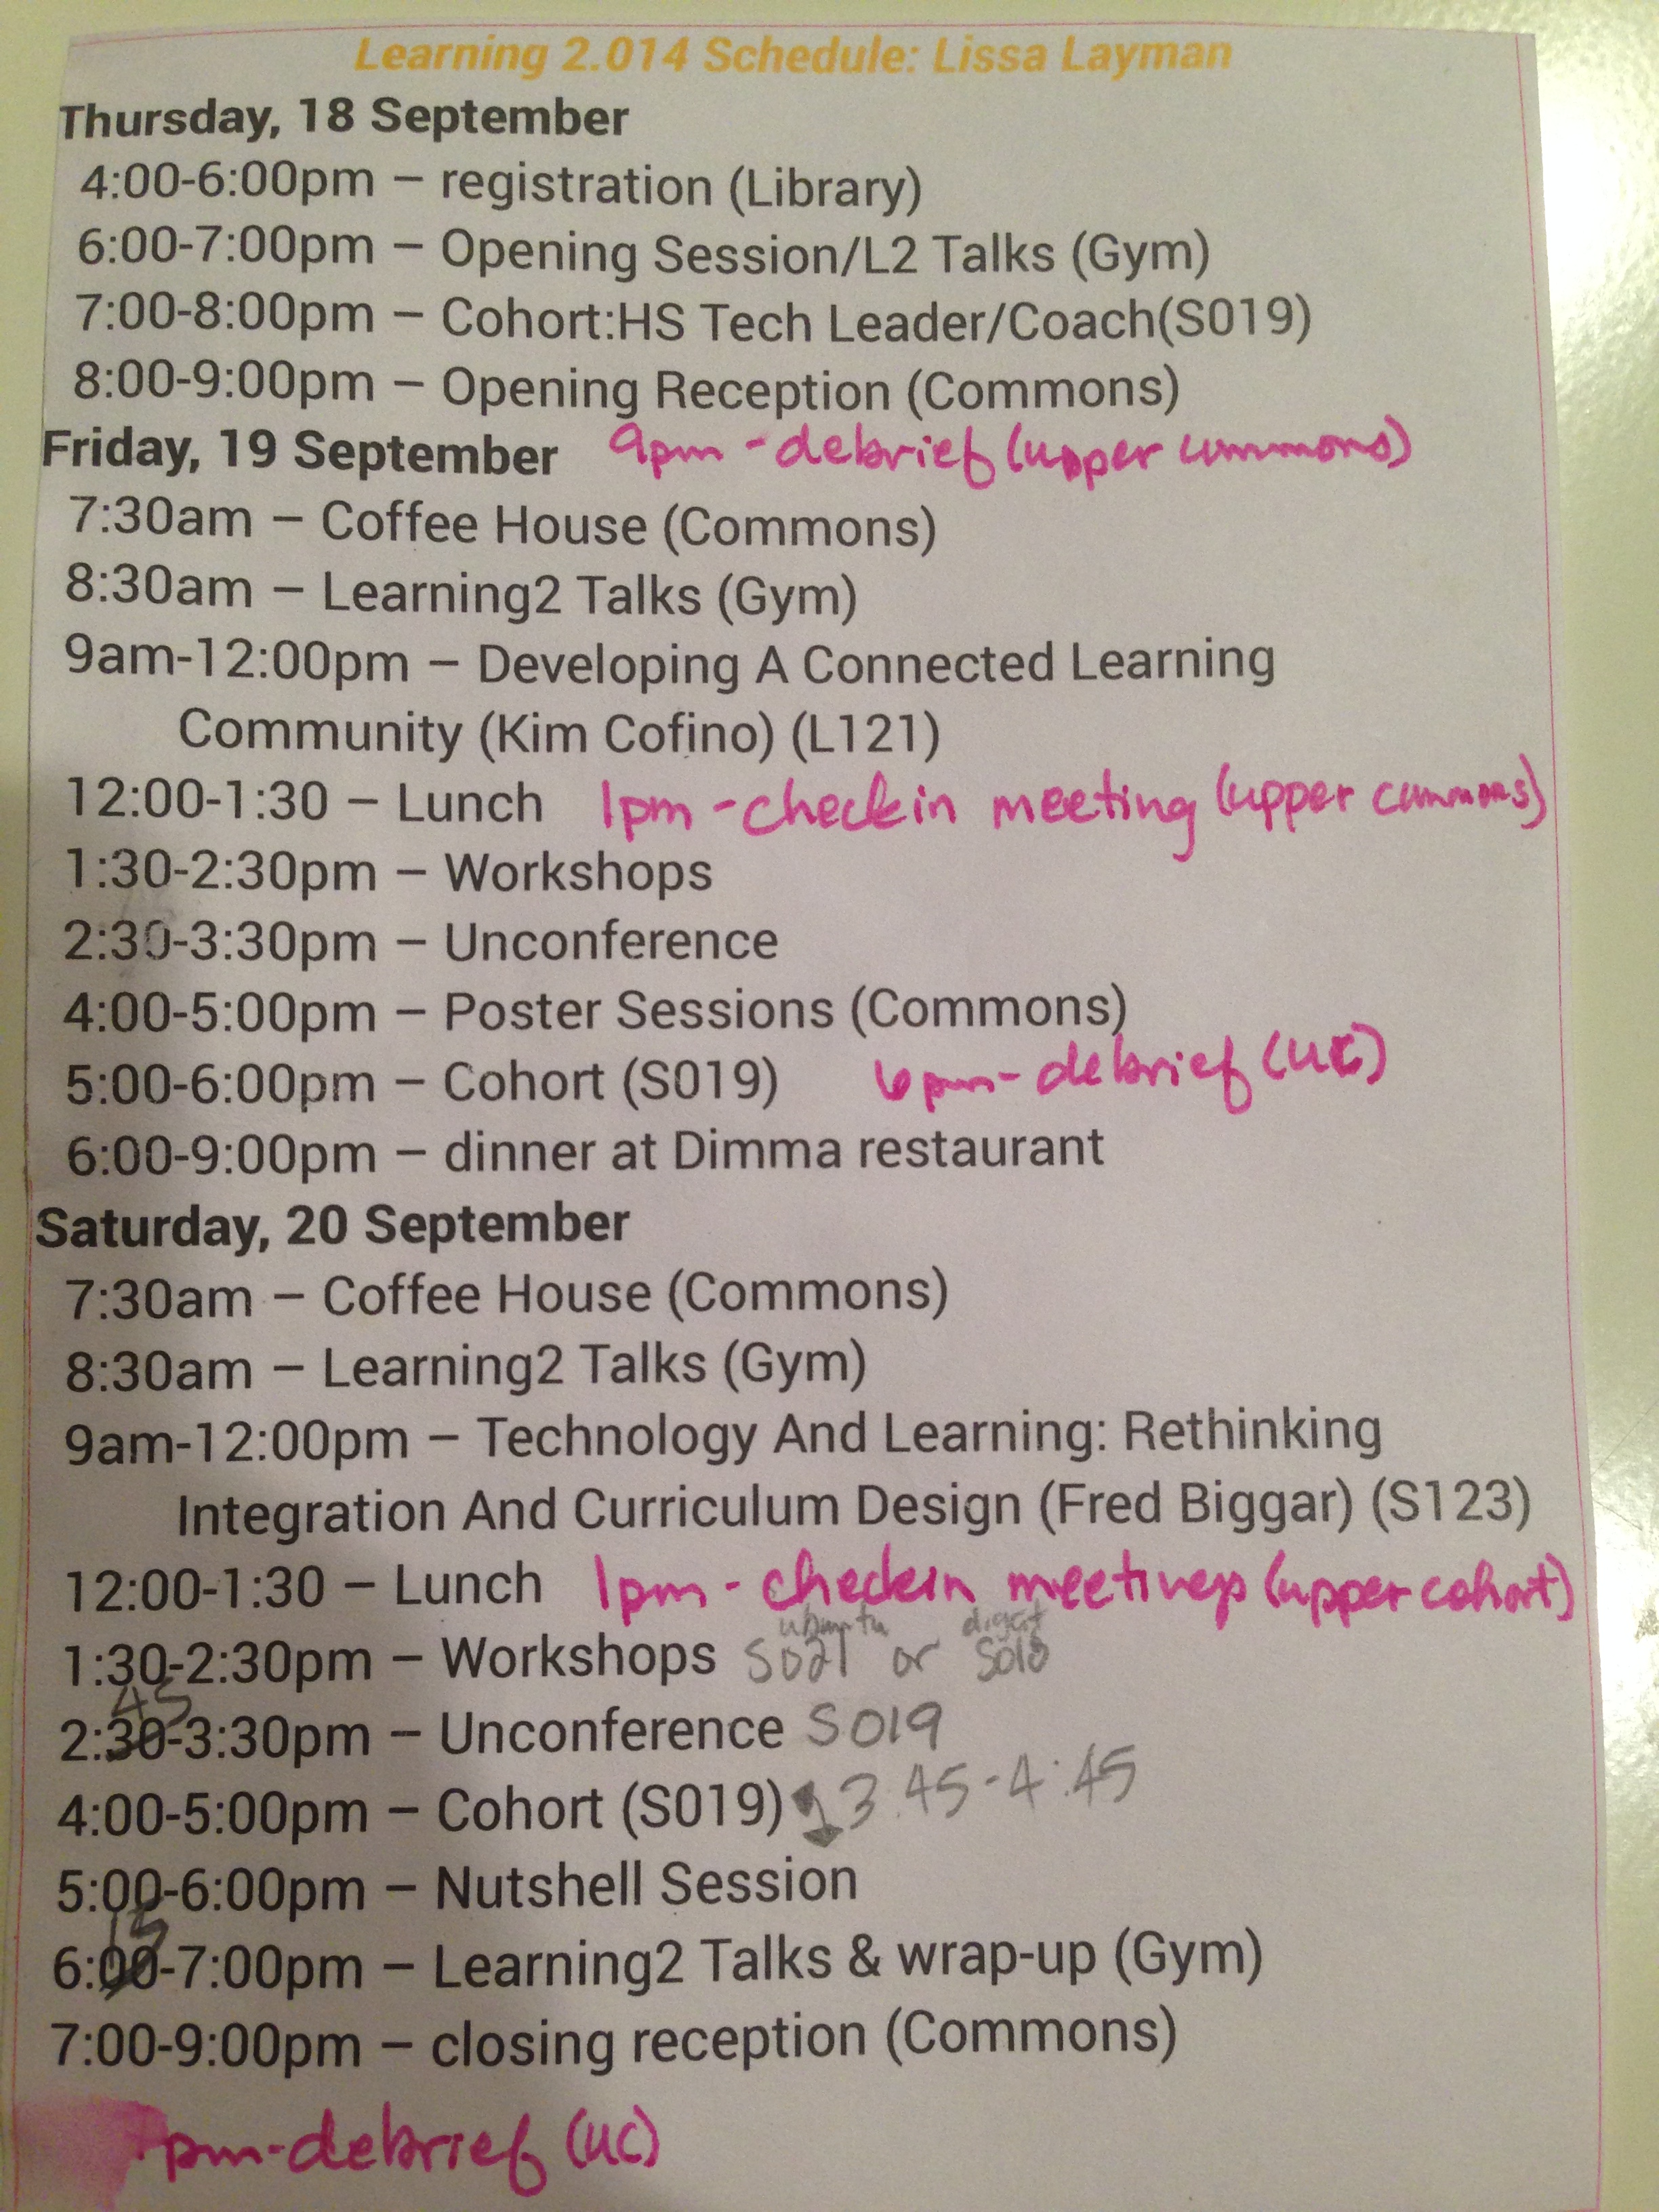 Learning 2.014 Schedule: Lissa Layman
Thursday, 18 September
4:00-6:00pm – registration (Library)
6:00-7:00pm – Opening Session/L2 Talks (Gym)
7:00-8:00pm – Cohort:HS Tech Leader/Coach(S019)
8:00-9:00pm – Opening Reception (Commons)
Friday, 19 September 9pm - debrief (upper commons)
7:30am – Coffee House (Commons)
8:30am – Learning2 Talks (Gym)
9am-12:00pm – Developing A Connected Learning
Community (Kim Cofino) (L121)
12:00-1:30 – Lunch 1pm - checkin meeting (upper commons)
1:30-2:30pm – Workshops
2:30-3:30pm – Unconference
4:00-5:00pm – Poster Sessions (Commons)
5:00-6:00pm – Cohort (S019) 6pm - debrief (UC)
6:00-9:00pm – dinner at Dimma restaurant
Saturday, 20 September
7:30am – Coffee House (Commons)
8:30am – Learning2 Talks (Gym)
9am-12:00pm – Technology And Learning: Rethinking
Integration And Curriculum Design (Fred Biggar) (S123)
12:00-1:30 – Lunch 1pm - checkin meetings (upper cohort)
ubuntu
1:30-2:30pm – Workshops S021 or S010
45
2:30-3:30pm – Unconference S019
4:00-5:00pm – Cohort (S019) 3:45-4:45
5:00-6:00pm – Nutshell Session
15
6:00-7:00pm – Learning2 Talks & wrap-up (Gym)
7:00-9:00pm – closing reception (Commons)
pm-debrief (UC)